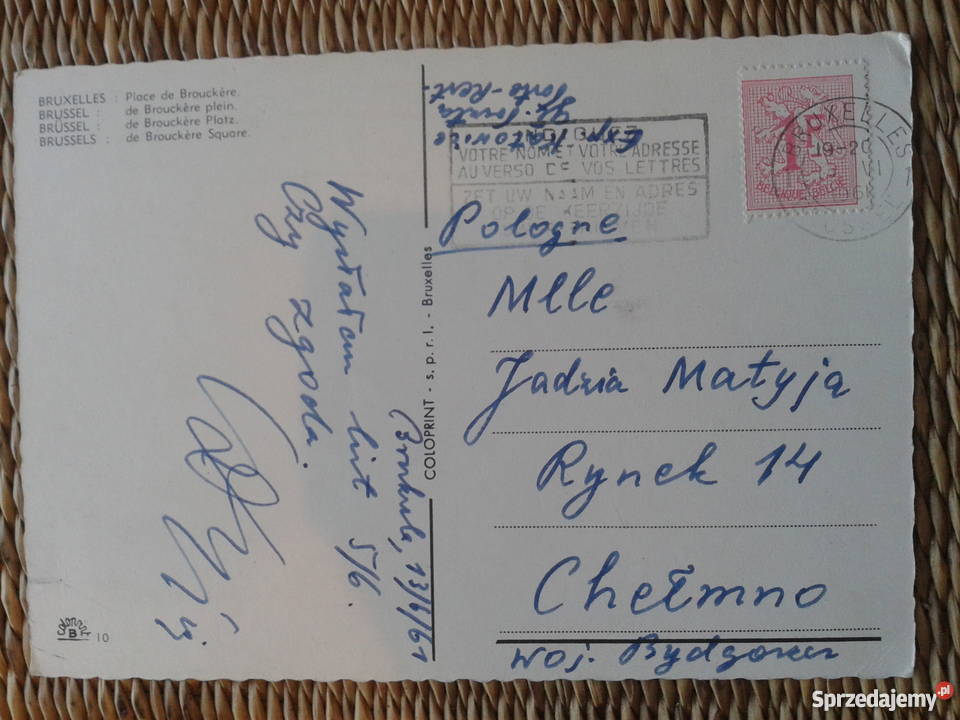 BRUXELLES : Place de Brouckère.
BRUSSEL : de Brouckère plein.
BRÜSSEL : de Brouckère Platz.
BRUSSELS : de Brouckère Square.
13/6/61
Wysłałam list 5/6.
Czy zgoda.
B 10
COLOPRINT - s.p.r.l. - Bruxelles
Katowice
VOTRE NOM ET VOTRE ADRESSE
AU VERSO DE VOS LETTRES
ZET UW NAAM EN ADRES
OP DE
1F
BELGIQUE-BELGIË
BRUXELLES
19-20
VI
Pologne
Mlle
Jadzia Matyja
Rynek 14
Chełmno
woj. Bydgoszcz
Sprzedajemy.pl